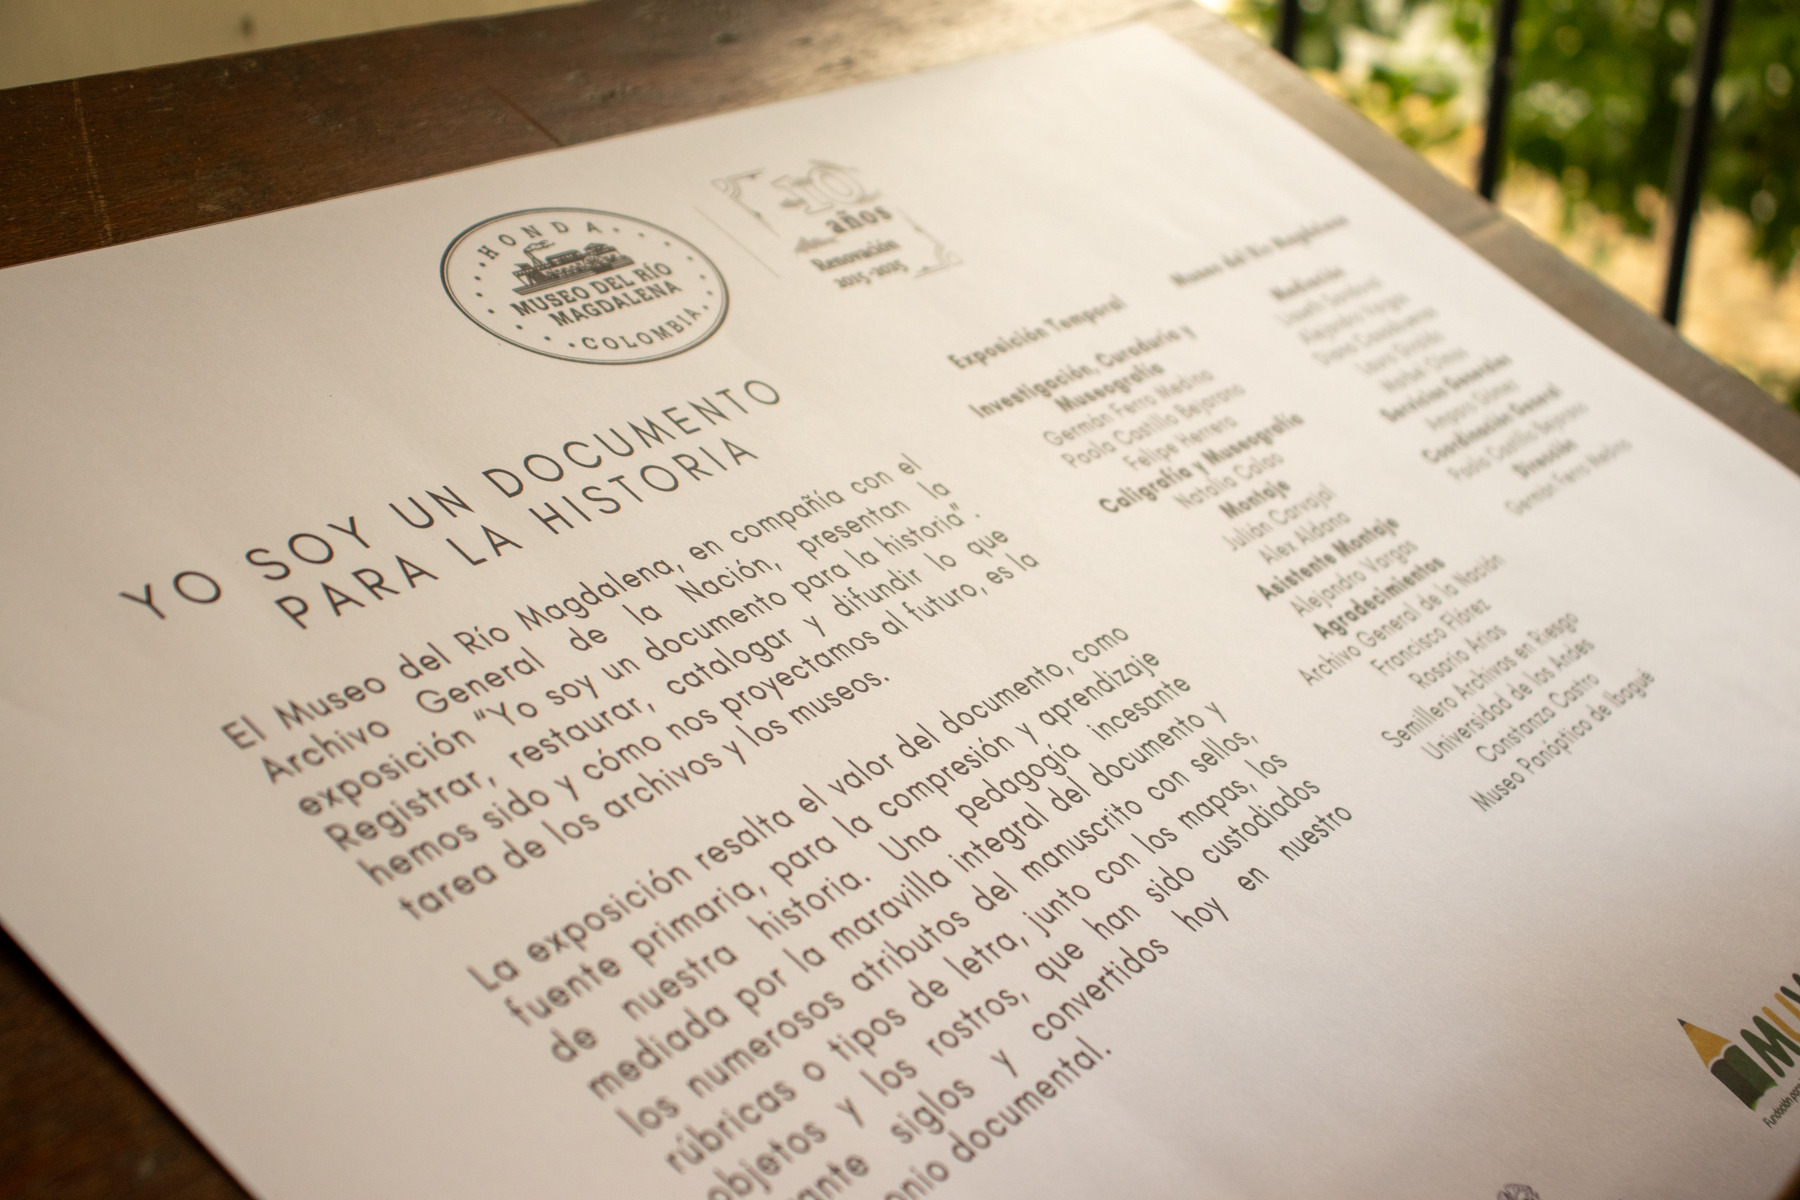 HONDA
MUSEO DEL RÍO
MAGDALENA
COLOMBIA
10
años
Renovación
2015-2025
YO SOY UN DOCUMENTO
PARA LA HISTORIA
El Museo del Río Magdalena, en compañía con el
Archivo General de la Nación, presentan la
exposición "Yo soy un documento para la historia".
Registrar, restaurar, catalogar y difundir lo que
hemos sido y cómo nos proyectamos al futuro, es la
tarea de los archivos y los museos.
La exposición resalta el valor del documento, como
fuente primaria, para la compresión y aprendizaje
de nuestra historia. Una pedagogía incesante
mediada por la maravilla integral del documento y
los numerosos atributos del manuscrito con sellos,
rúbricas o tipos de letra, junto con los mapas, los
objetos y los rostros, que han sido custodiados
siglos y convertidos hoy en nuestro
documental.
Exposición Temporal
Investigación, Curaduría y
Museografía
Germán Ferro Medina
Paola Castillo Bejarano
Felipe Herrera
Caligrafía y Museografía
Natalia Calao
Montaje
Julián Carvajal
Alex Aldana
Asistente Montaje
Alejandro Vargas
Agradecimientos
Archivo General de la Nación
Francisco Flórez
Rosario Arias
Semillero Archivos en Riesgo
Universidad de los Andes
Constanza Castro
Museo Panóptico de Ibagué
Museo del Río Magdalena
Mediación
Alejandro Vargas
Servicios Generales
Coordinación General
Paola Castillo Bejarano
Dirección
Germán Ferro Medina